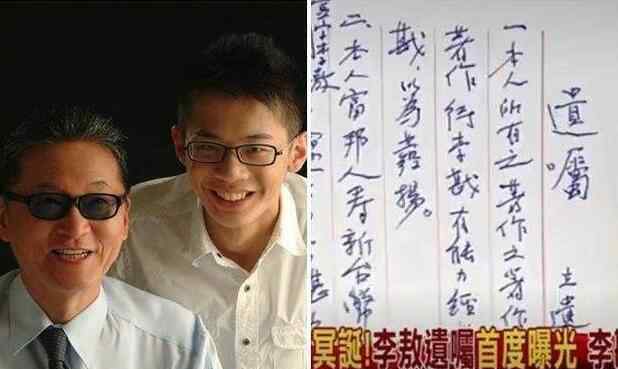 遺囑。 立遺
一本人所有之著作之著作
李戡有能力經
戡，以為發揚。
二、本人富邦人壽新台幣
冥誕!李敖遺囑首度曝光 李